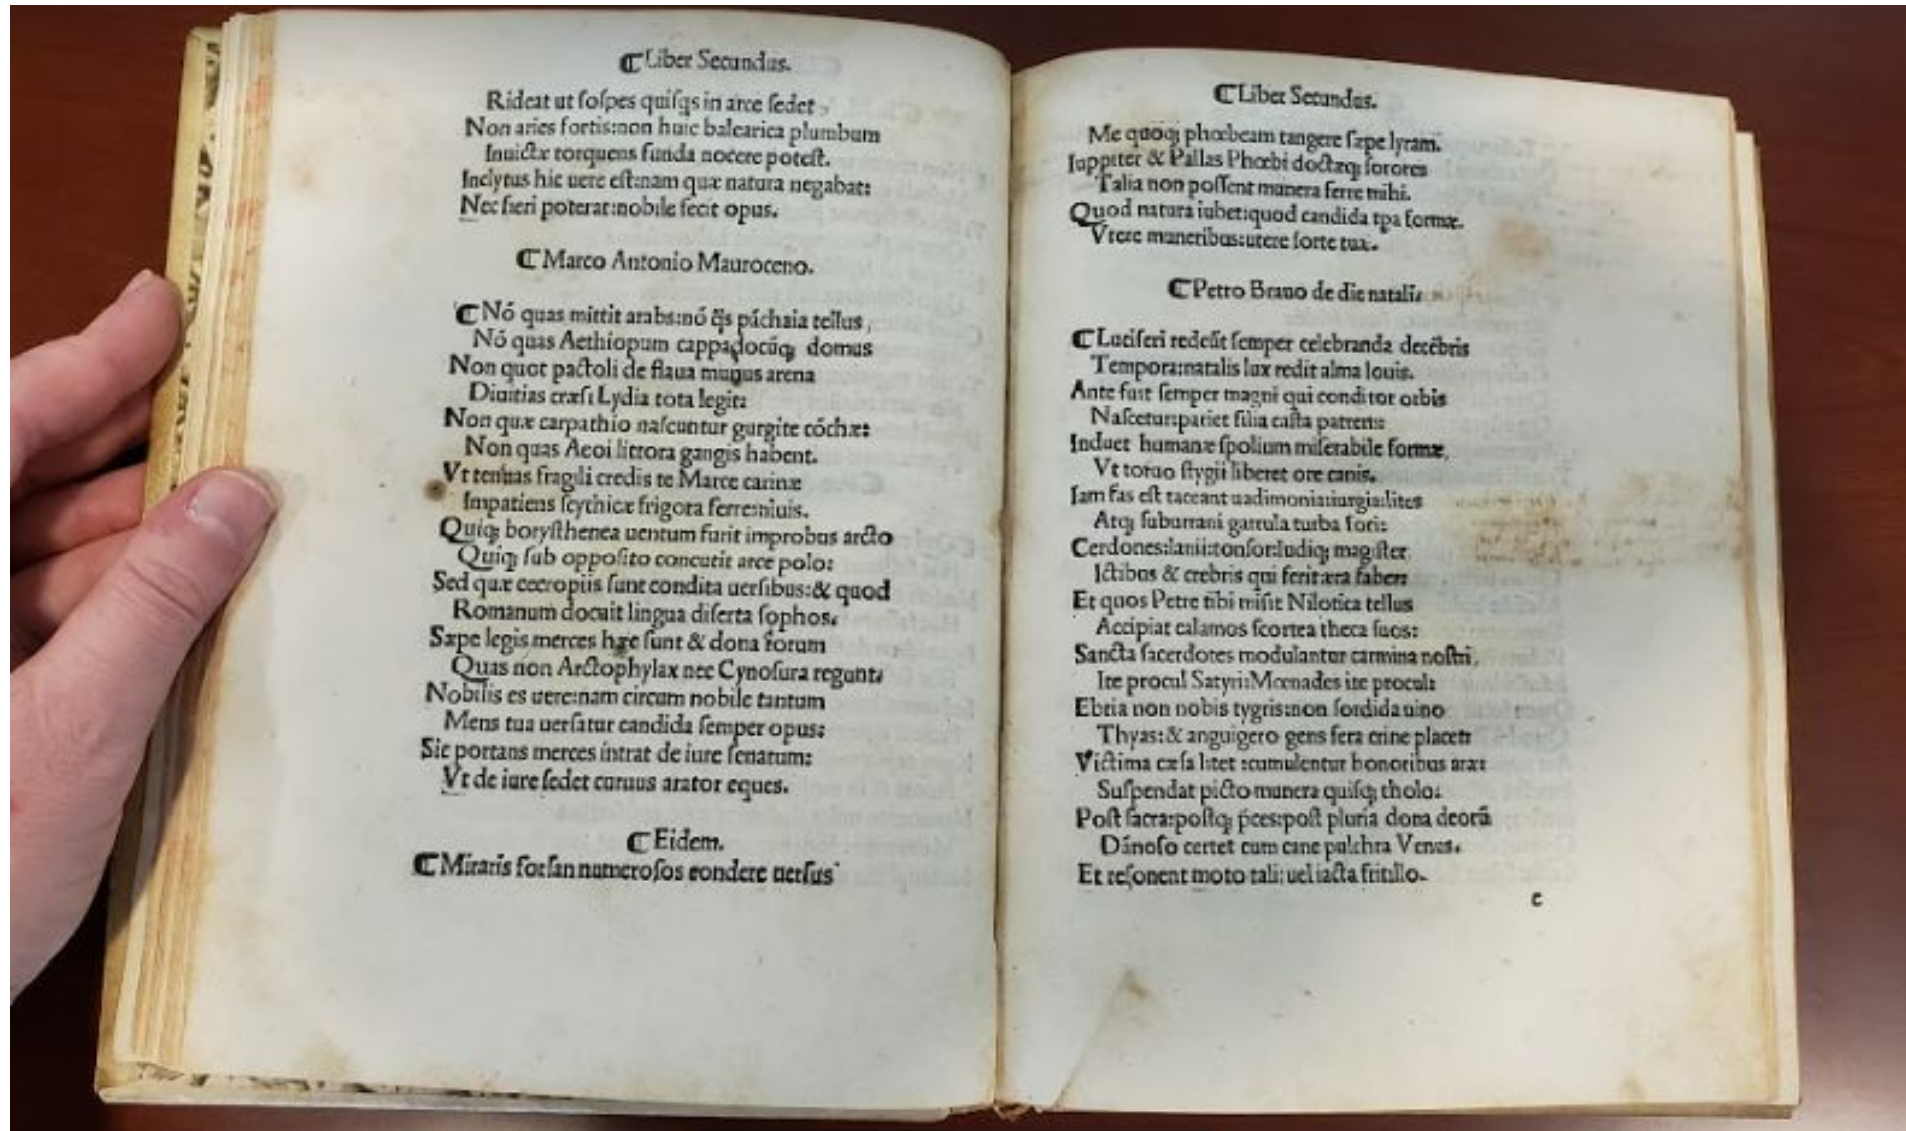 ⁋Liber Secundus.
Rideat ut ſoſpes quiſqs in arce ſedet,
Non aries fortis:non huic balearica plumbum
Inuictæ torquens funda nocere poteſt.
Inclytus hic uere eſt:nam quæ natura negabat:
Nec fieri poterat:nobile fecit opus.
⁋Marco Antonio Mauroceno.
⁋Nó quas mittit arabs:nó q̃s páchaia tellus,
Nó quas Aethiopum cappadocũqꝫ domus
Non quot pactoli de flaua munus arena
Diuitias cræſi Lydia tota legit:
Non quæ carpathio naſcuntur gurgite cóchæ:
Non quas Aeoi littora gangis habent.
Vt tenuas fragili credis te Marce carinæ
Impatiens ſcythicæ frigora ferre:niuis.
Quiqꝫ boryſthenea uentum furit improbus arcto
Quiqꝫ ſub oppoſito concutit arce polo:
Sed quæ cecropiis ſunt condita uerſibus:& quod
Romanum docuit lingua diſerta ſophos.
Sæpe legis merces hæc ſunt & dona forum
Quas non Arctophylax nec Cynoſura regunt.
Nobilis es uere:nam circum nobile tantum
Mens tua uerſatur candida ſemper opus:
Sic portans merces intrat de iure ſenatum:
Vt de iure ſedet curuus arator eques.
⁋Eidem.
⁋Miraris forſan numeroſos condere uerſus
⁋Liber Secundus.
Me quoqꝫ phœbeam tangere ſæpe lyram.
Iuppiter & Pallas Phœbi doctæqꝫ ſorores
Talia non poſſent munera ferre mihi.
Quod natura iubet:quod candida tpa formæ.
Vtere muneribus:utere ſorte tua.
⁋Petro Brauo de die natali.
⁋Luciferi redeũt ſemper celebranda decẽbris
Tempora:natalis lux redit alma Iouis.
Ante fuit ſemper magni qui conditor orbis
Naſcetur:pariet filia caſta patrem:
Induet humanæ ſpolium miſerabile formæ,
Vt toruo ſtygii liberet ore canis.
Iam fas eſt taceant uadimonia:iurgia:lites
Atqꝫ ſuburrani garrula turba fori:
Cerdones:lanii:tonſor:ludiqꝫ magiſter
Ictibus & crebris qui ferit æra faber:
Et quos Petre tibi miſit Nilotica tellus
Accipiat calamos ſcortea theca ſuos:
Sancta ſacerdotes modulantur carmina noſtri,
Ite procul Satyri:Mœnades ite procul:
Ebria non nobis tygris:non ſordida uino
Thyas:& anguigero gens fera crine placet:
Victima cæſa litet:cumulentur honoribus aræ:
Suſpendat picto munera quiſqꝫ tholo:
Poſt ſacra:poſtqꝫ p̄ces:poſt pluria dona deorũ
Dánoſo certet cum cane pulchra Venus.
Et reſonent moto tali:uel iacta fritillo.
c